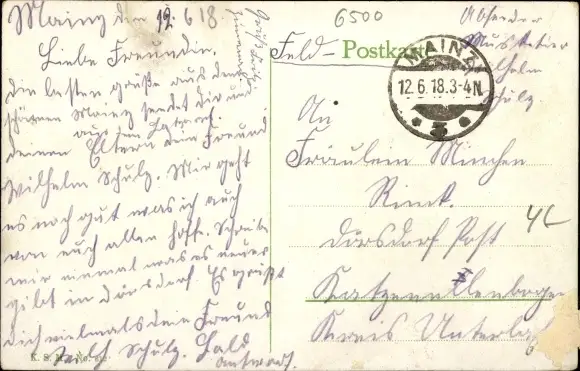 Mainz den 12.6.18.
Liebe Freundin.
die besten Grüße aus dem
schönen Mainz sendet dir und
aus dem Lazarett
deinen Eltern dein Freund
Wilhelm Schulz. Mir geht
es noch gut was ich auch
von euch allen hoffe. Schreibe
mir einmal was es neues
gibt in Dörsdorf. Es grüßt
dich vielmals dein Freund
Wilh Schulz. Bald
Antwort.
6500
Feld-Postkarte
Absender
Musketier
Wilhelm
Schulz.
MAINZ
12.6.18.3-4N.
* 3 *
An
Fräulein Minchen
Dörsdorf Post
Katzenellenbogen
Kreis Unterlah